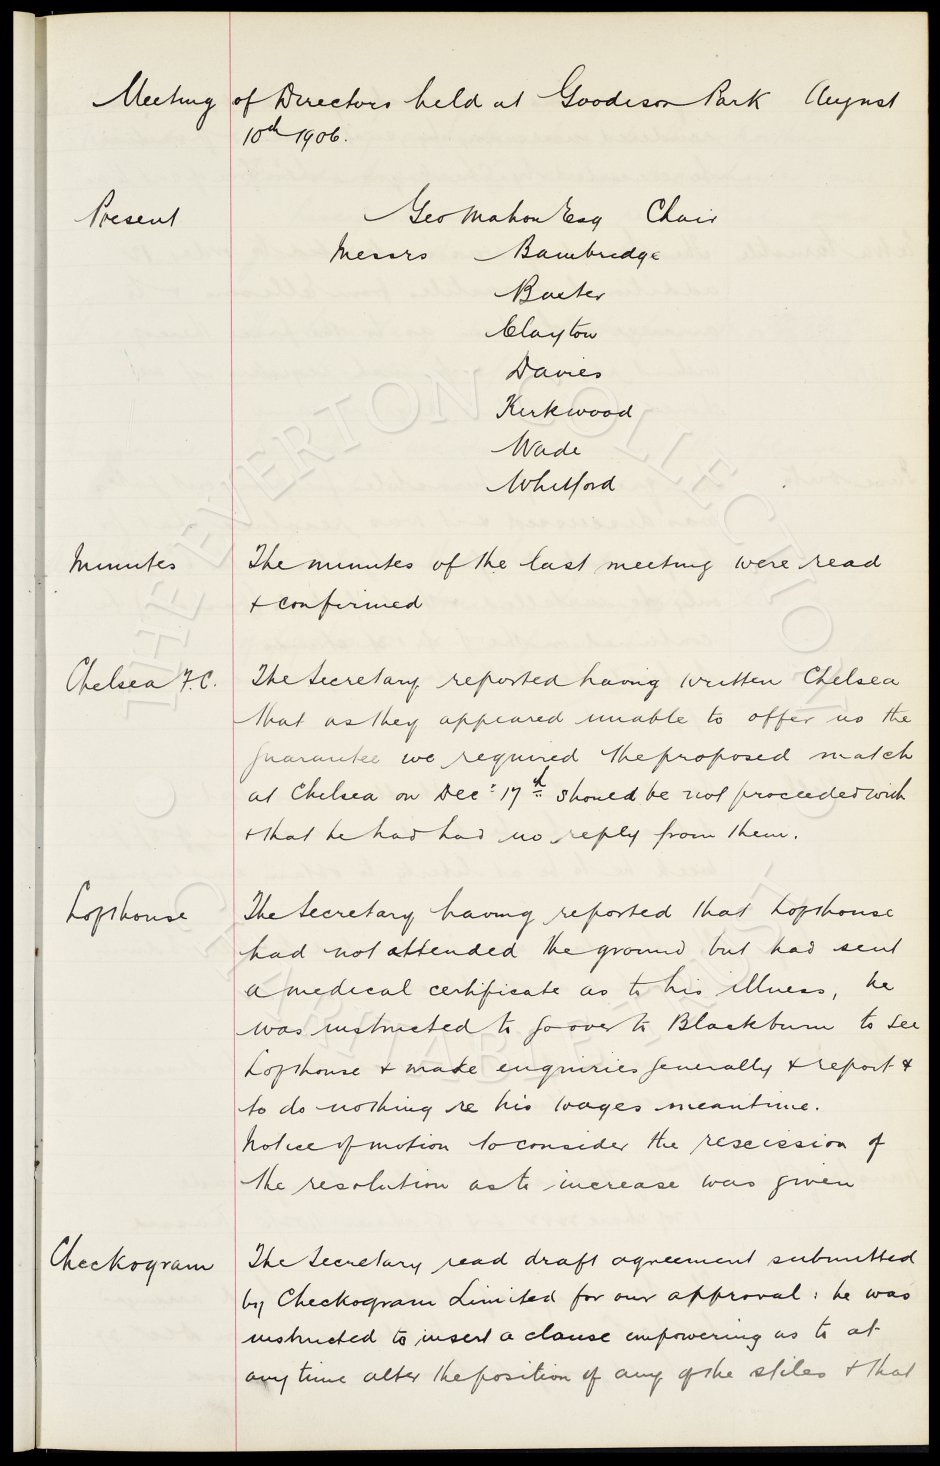 Meeting of Directors held at Goodison Park August
10th 1906.
Present Geo Mahon Esq Chair
Messrs Bainbridge
Baxter
Clayton
Davies
Kirkwood
Wade
Whitford
Minutes The minutes of the last meeting were read
& confirmed
Chelsea F.C. The Secretary reported having written Chelsea
that as they appeared unable to offer us the
guarantee we required the proposed match
at Chelsea on Dec: 17th should be not proceeded with
& that he had had no reply from them.
Lofthouse The Secretary having reported that Lofthouse
had not attended the ground but had sent
a medical certificate as to his illness, he
was instructed to go over to Blackburn to see
Lofthouse & make enquiries generally & report &
to do nothing re his wages meantime.
Notice of motion to consider the rescission of
the resolution as to increase was given
Checkogram The Secretary read draft agreement submitted
by Checkogram Limited for our approval: he was
instructed to insert a clause empowering us to at
any time alter the position of any of the stiles & that
THE EVERTON COLLECTION
CHARITABLE TRUST